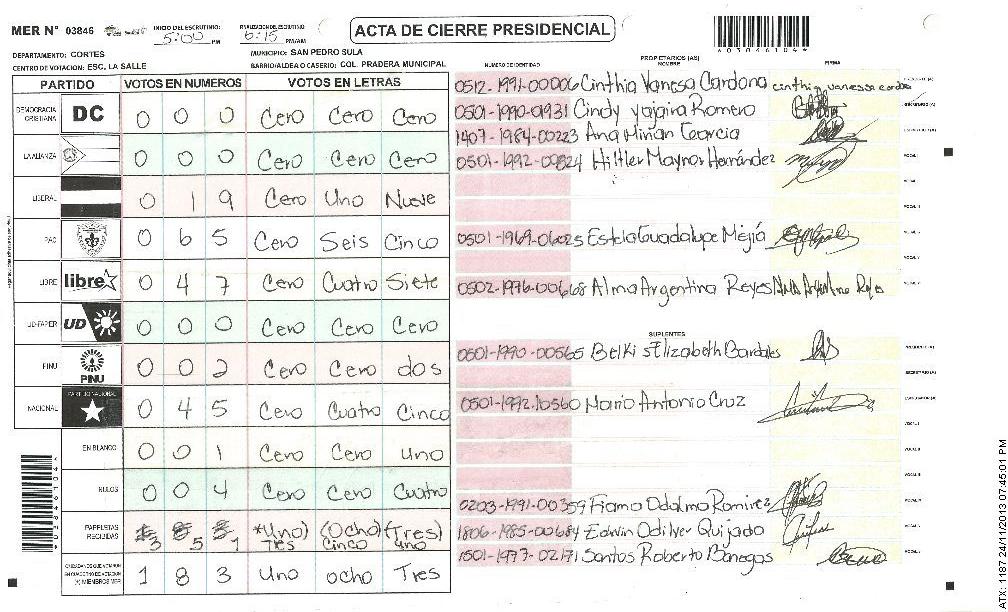 MER N° 03846 INICIO DEL ESCRUTINIO: 5:00 PM FINALIZACION DEL ESCRUTINIO: 6:15 PM/AM
ACTA DE CIERRE PRESIDENCIAL
DEPARTAMENTO: CORTES MUNICIPIO: SAN PEDRO SULA
CENTRO DE VOTACION: ESC. LA SALLE BARRIO/ALDEA O CASERIO: COL. PRADERA MUNICIPAL
PARTIDO VOTOS EN NUMEROS VOTOS EN LETRAS
DEMOCRACIA CRISTIANA DC 0 0 0 Cero Cero Cero
LA ALIANZA 0 0 0 Cero Cero Cero
LIBERAL 0 1 9 Cero Uno Nueve
PAC 0 6 5 Cero Seis Cinco
LIBRE libre 0 4 7 Cero Cuatro Siete
UD-FAPER UD 0 0 0 Cero Cero Cero
PINU PINU 0 0 2 Cero Cero dos
NACIONAL PARTIDO NACIONAL 0 4 5 Cero Cuatro Cinco
EN BLANCO 0 0 1 Cero Cero uno
NULOS 0 0 4 Cero Cero Cuatro
PAPELETAS RECIBIDAS 3 5 1 (Uno) (Ocho) (Tres)
Tres Cinco uno
CIUDADANOS QUE VOTARON 1 8 3 Uno ocho Tres
NUMERO DE IDENTIDAD PROPIETARIOS (AS) NOMBRE FIRMA
0512-1991-00006 Cinthia Vanesa Cardona cinthia vanessa cardona
0501-1990-01931 Cindy yajaira Romero
1407-1984-00223 Ana Mirian Garcia
0501-1992-00824 Hiltler Maynor Hernández
0501-1969-06025 Estela Guadalupe Mejia
0502-1976-00668 Alma Argentina Reyes
SUPLENTES
0501-1990-00565 Belki s Elizabeth Bardales
0501-1992-10560 Mario Antonio Cruz
0203-1991-00359 Odalma Ramirez
1806-1985-00684 Edwin Odilver Quijado
1501-1977-02171 Santos Roberto Bánegas
ATX: 1187 24/11/2013 07:45:01 PM